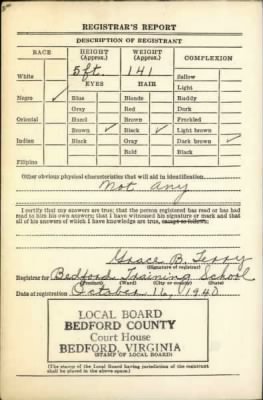 REGISTRAR'S REPORT
DESCRIPTION OF REGISTRANT
RACE HEIGHT (Approx.) WEIGHT (Approx.) COMPLEXION
White 5 ft. 141 Sallow
EYES HAIR Light
Negro ✓ Blue Blonde Ruddy
Gray Red Dark
Oriental Hazel Brown Freckled
Brown ✓ Black ✓ Light brown
Indian Black Gray Dark brown ✓
Bald Black
Filipino
Other obvious physical characteristics that will aid in identification
Not any
I certify that my answers are true; that the person registered has read or has had
read to him his own answers; that I have witnessed his signature or mark and that
all of his answers of which I have knowledge are true, except as follows:
Grace B. Terry
(Signature of registrar)
Registrar for Bedford Training School
(Precinct) (Ward) (City or county) (State)
Date of registration October 16, 1940
LOCAL BOARD
BEDFORD COUNTY
Court House
BEDFORD, VIRGINIA
(STAMP OF LOCAL BOARD)
(The stamp of the Local Board having jurisdiction of the registrant
shall be placed in the above space.)